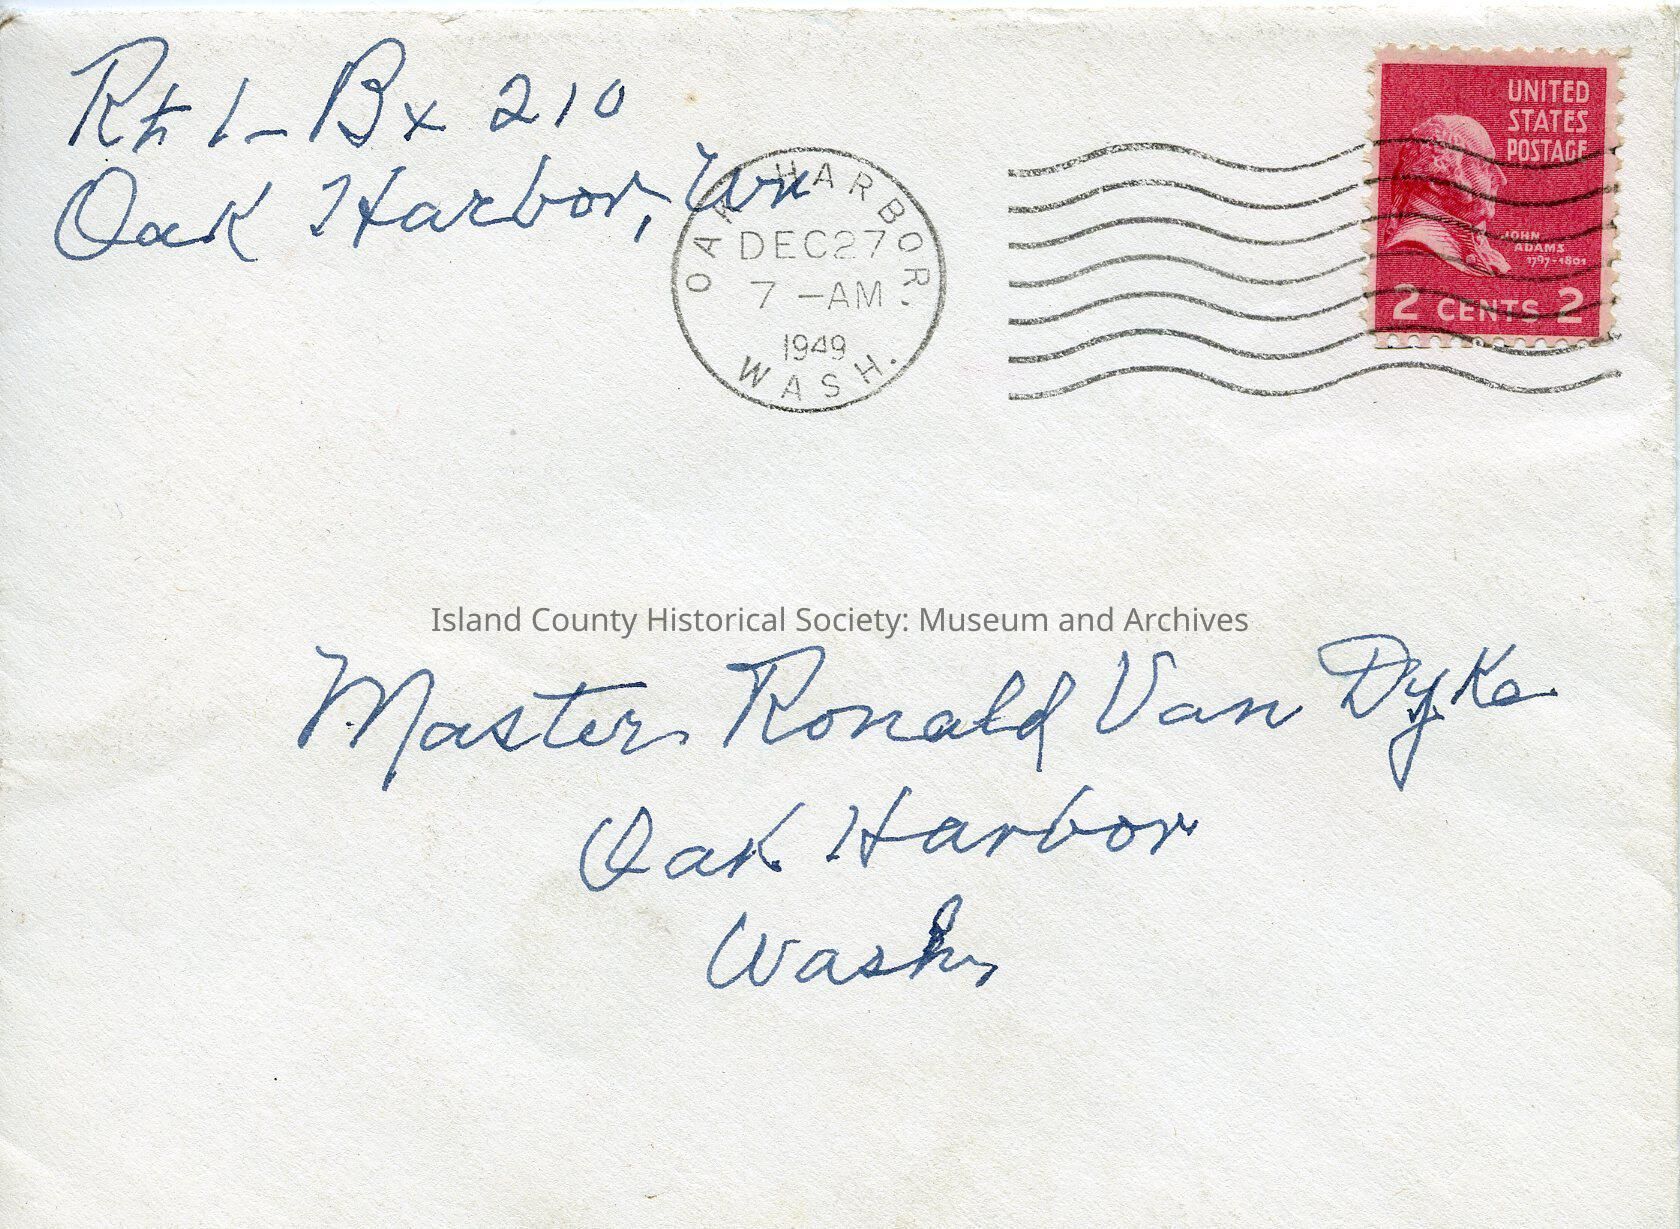 Rt 1 - Bx 210
Oak Harbor, Wn
OAK HARBOR.
DEC 27
7 -AM
1949
WASH.
UNITED
STATES
POSTAGE
JOHN
ADAMS
1797-1801
2 CENTS 2
Island County Historical Society: Museum and Archives
Master Ronald Van Dyke
Oak Harbor
Wash,